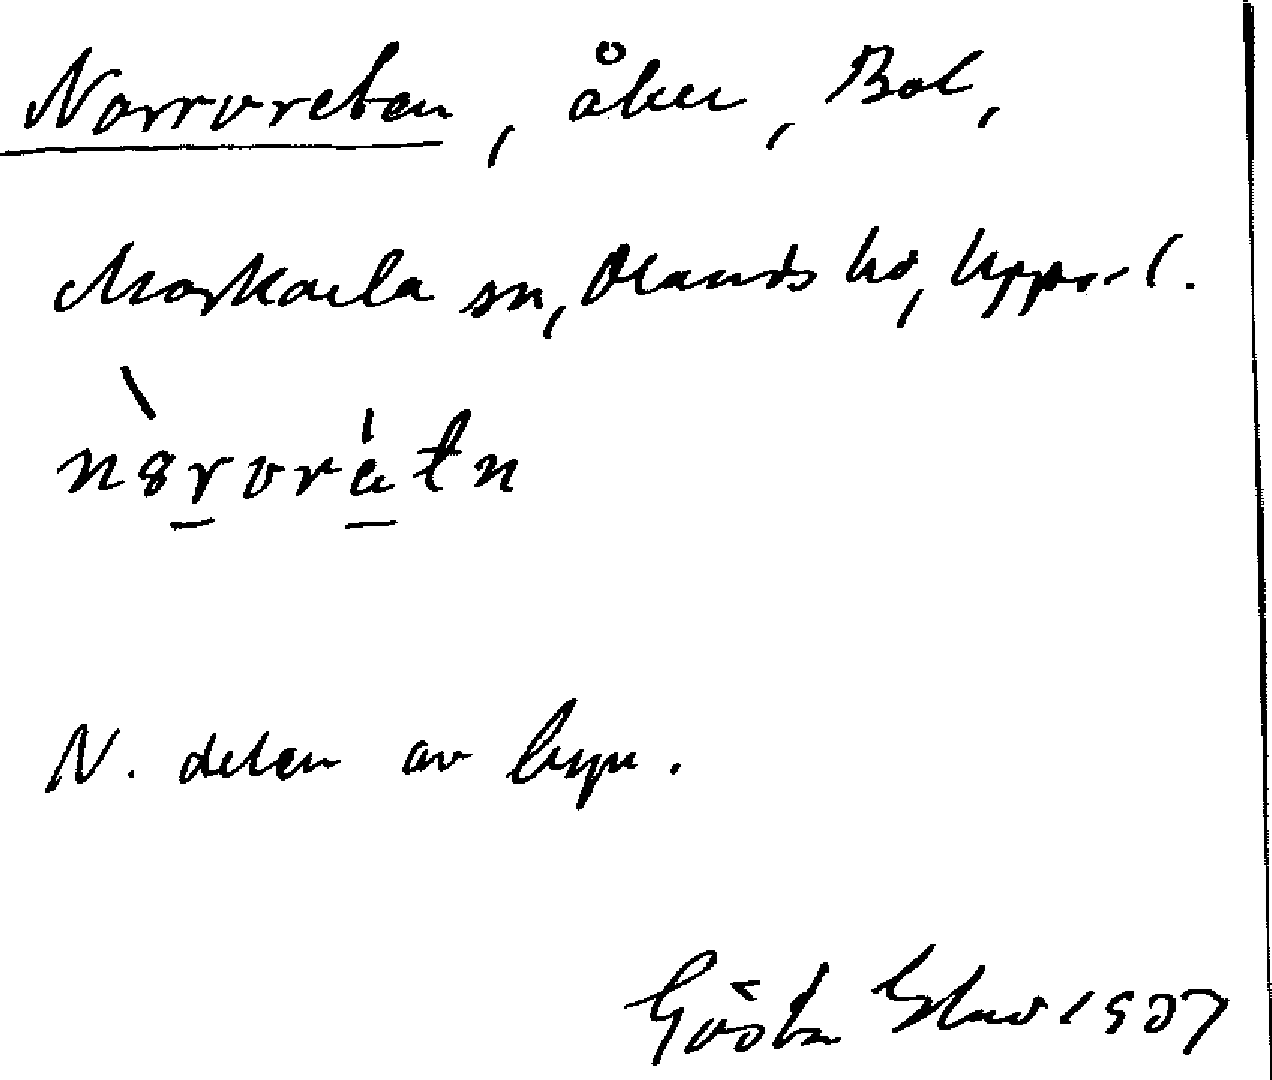 Norrvreten, åker, Bol,
Morkarla sn, Olands hd, Uppsl.
n8rvrätn
N. delen av byn.
Gösta 1937